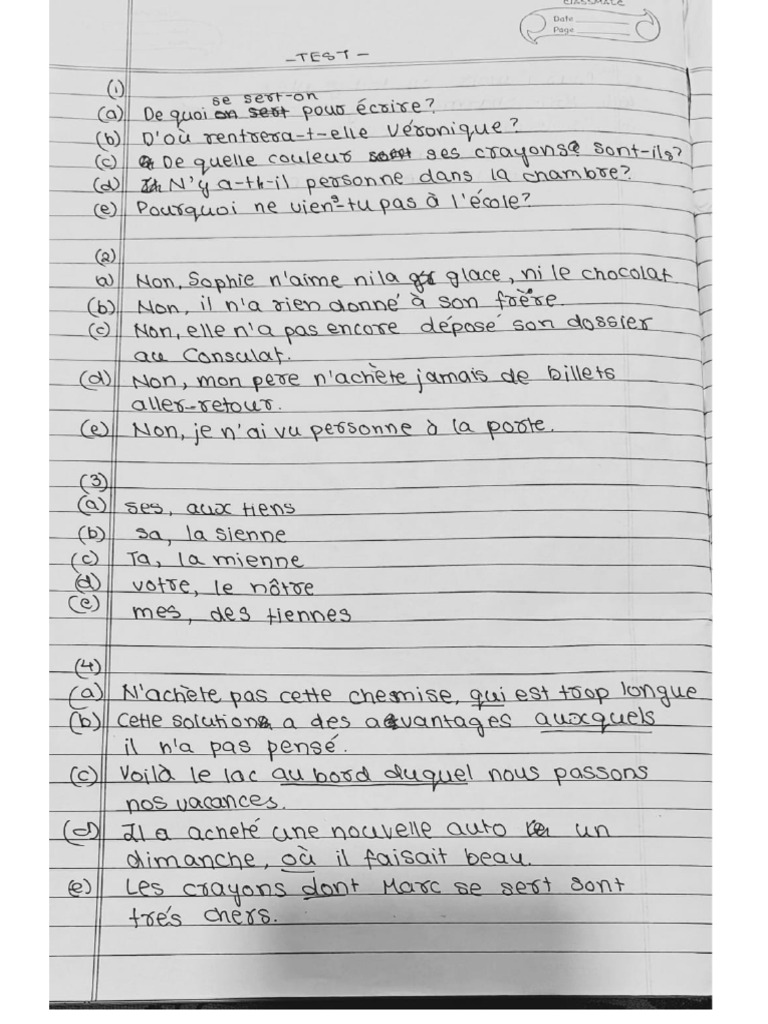 CLASSMATE
Date
Page
-TEST-
(1)
se sert-on
(a) De quoi on sert pour écrire?
(b) D'où rentrera-t-elle Véronique?
(c) De quelle couleur ses crayons sont-ils?
(d) N'y a-th-il personne dans la chambre?
(e) Pourquoi ne viens-tu pas à l'école?
(2)
a) Non, Sophie n'aime ni la glace, ni le chocolat
(b) Non, il n'a rien donné à son frère.
(c) Non, elle n'a pas encore déposé son dossier
au Consulat.
(d) Non, mon pere n'achète jamais de billets
aller-retour.
(e) Non, je n'ai vu personne à la porte.
(3)
(a) ses, aux tiens
(b) sa, la sienne
(c) Ta, la mienne
(d) votre, le nôtre
(e) mes, des tiennes
(4)
(a) N'achète pas cette chemise, qui est trop longue
(b) Cette solution a des avantages auxquels
il n'a pas pensé.
(c) Voilà le lac au bord duquel nous passons
nos vacances.
(d) Il a acheté une nouvelle auto un
dimanche, où il faisait beau.
(e) Les crayons dont Marc se sert sont
trés chers.